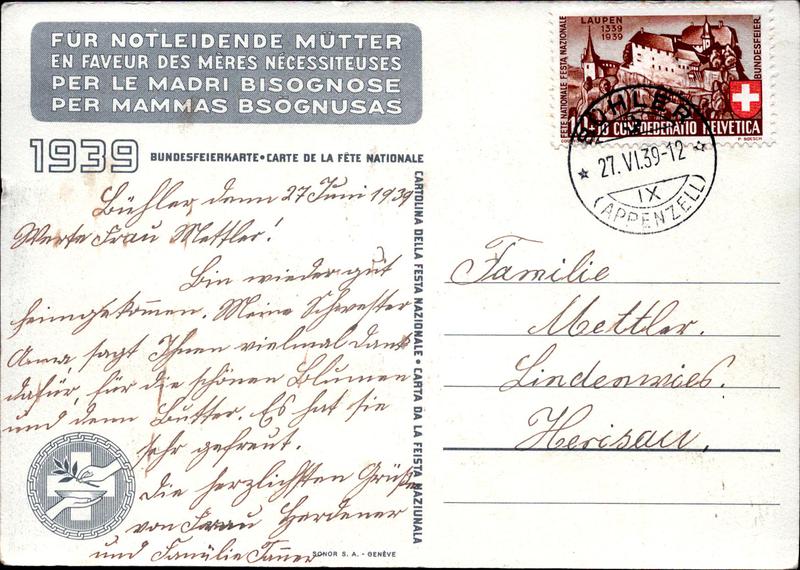 FÜR NOTLEIDENDE MÜTTER
EN FAVEUR DES MÈRES NÉCESSITEUSES
PER LE MADRI BISOGNOSE
PER MAMMAS BSÖGNUSAS
1939 BUNDESFEIERKARTE • CARTE DE LA FÊTE NATIONALE
CARTOLINA DELLA FESTA NAZIONALE • CARTA DA LA FEISTA NAZIUNALA
Bühler denn 27 Juni 1939
Werte Frau Mettler!
Bin wieder gut
heimgekommen. Meine Schwester
Anna sagt Ihnen vielmal Dank
dafür, für die schönen Blumen
und denn Butter. Es hat sie
sehr gefreut.
Die herzlichsten Grüße
von Frau Herdener
und Familie Tanner
SONOR S. A. - GENÈVE
FÊTE NATIONALE FESTA NAZIONALE
LAUPEN
1339
1939
BUNDESFEIER
CONFOEDERATIO HELVETICA
BÜHLER
27. VI. 39-12
IX
(APPENZELL)
Familie
Mettler.
Lindenwies.
Herisau.